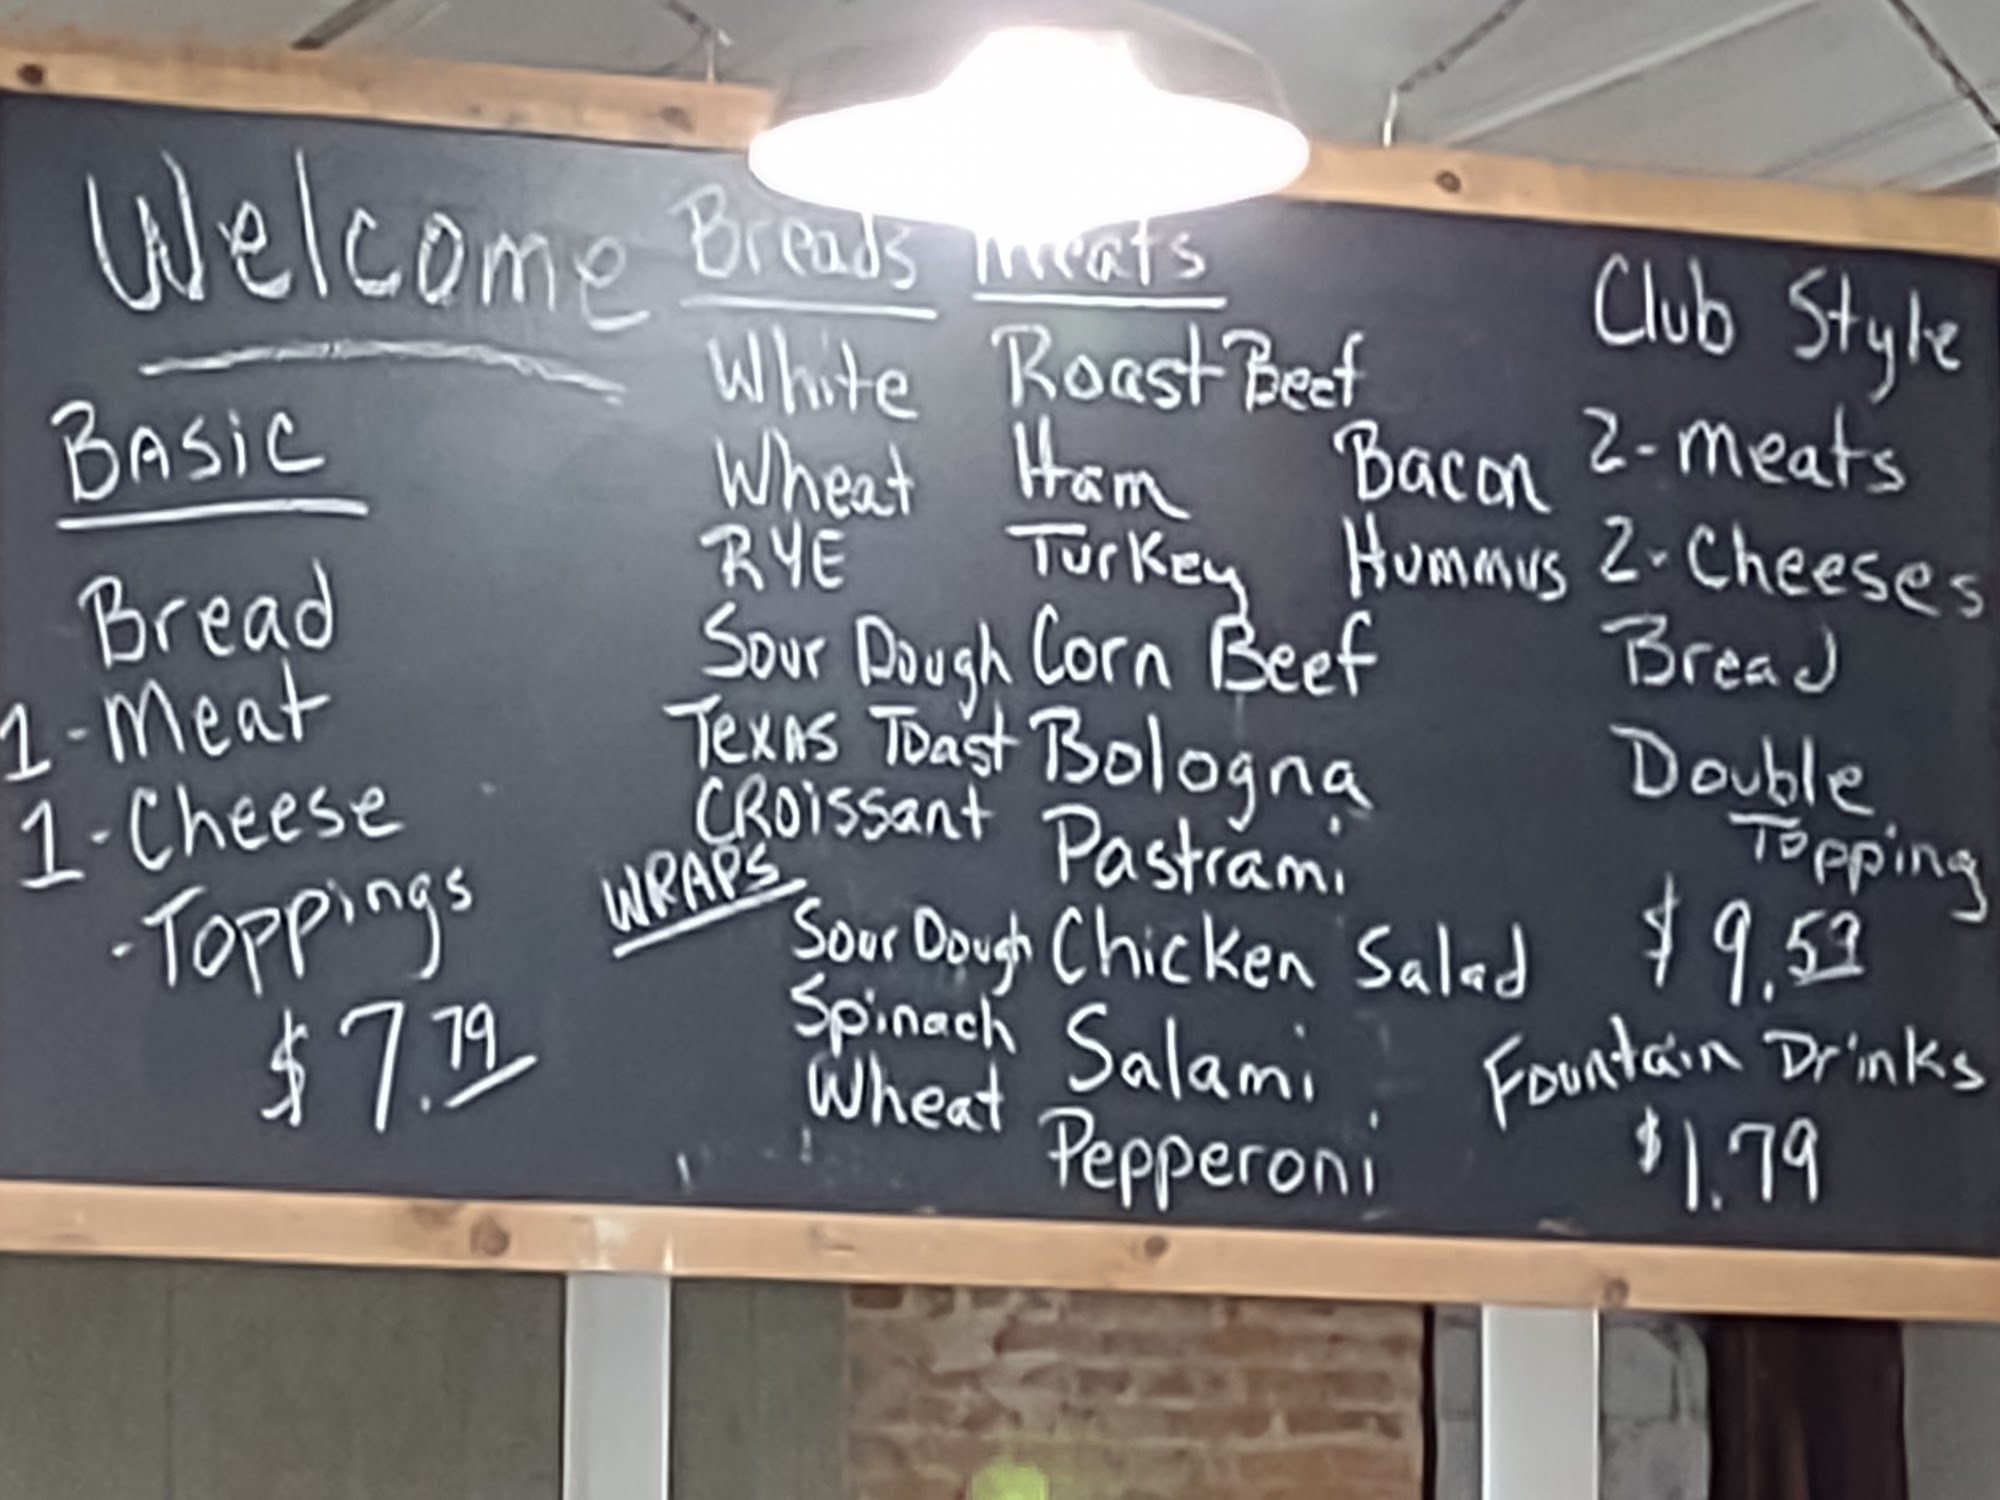 Welcome
BASiC
Bread
1-Meat
1-Cheese
-Toppings
$7.79
Breads
White
Wheat
RYE
Sour Dough
TEXAS TOast
CROissant
WRAPS
Sour Dough
Spinach
Wheat
Meats
Roast Beef
Ham
Turkey
Corn Beef
Bologna
Pastrami
Chicken Salad
Salami
Pepperoni
Bacon
Hummus
Club Style
2-meats
2-Cheeses
Bread
Double
Topping
$9.59
Fountain Drinks
$1.79